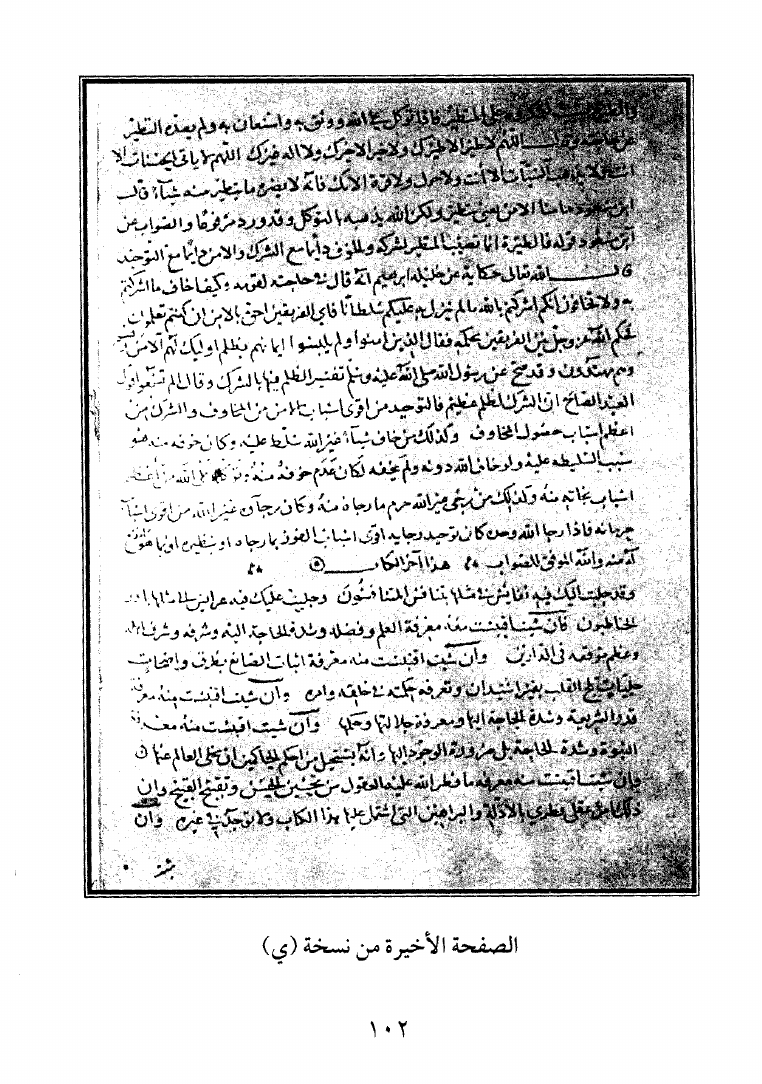 على المتطير فاذا توكل على الله ووثق به واستعان به ولم يصده التطير
عن حاجته وقال اللهم لا طير الا طيرك ولا خير الا خيرك ولا اله غيرك اللهم لا ياتي بالحسنات الا
انت ولا يذهب بالسيئات الا انت ولا حول ولا قوة الا بك فانه لا يضره ما يتطير منه شيأ قال
ابن مسعود وما منا الا من يعني يتطير ولكن الله يذهبه بالتوكل وقد ورد مرفوعا والصواب عن
ابن مسعود قوله فالطيرة انما تصيب المتطير لشركه والخوف دائما مع الشرك والامن دائما مع التوحيد
قال الله تعالى حكاية عن خليله ابراهيم انه قال في محاجته لقومه وكيف اخاف ما اشركتم
به ولا تخافون انكم اشركتم بالله ما لم ينزل به عليكم سلطانا فاي الفريقين احق بالامن ان كنتم تعلمون
فحكم الله عز وجل بين الفريقين بحكمه فقال الذين امنوا ولم يلبسوا ايمانهم بظلم اوليك لهم الامن
وهم مهتدون وقد صح عن رسول الله صلى الله عليه وسلم تفسير الظلم فيها بالشرك وقال الم تسمعوا قول
العبد الصالح ان الشرك لظلم عظيم فالتوحيد من اقوى اسباب الامن من المخاوف والشرك من
اعظم اسباب حصول المخاوف وكذلك من خاف شيأ غير الله سلط عليه وكان خوفه منه هو
سبب تسليطه عليه ولو خاف الله دونه ولم يخفه لكان عدم خوفه منه وتوكله على الله من اعظم
اسباب نجاته منه وكذلك من رجى غير الله حرم ما رجاه منه وكان رجاؤه غير الله من اقوى اسباب
حرمانه فاذا رجا الله وحده كان توحيد رجايه اقوى اسباب الفوز بما رجاه او بنظيره او بما هو انفع
له منه والله الموفق للصواب هذا آخر الكتاب
وقد جلبت اليك فيه نفايس في مثلها يتنافس المتنافسون وجليت عليك فيه عرايس الى مثلها بادر
الخاطبون فان شيت اقتبست منه معرفة العلم وفضله وشدة الحاجة اليه وشرفه وشرف اهله
وعظم موقعه في الدارين وان شيت اقتبست منه معرفة اثبات الصانع بطرق واضحات
جليات تلج القلب بغير استيذان ومعرفة حكمته في خلقه وامره وان شيت اقتبست منه معرفة
قدر الشريعة وشدة الحاجة اليها ومعرفة جلالتها وحكمها وان شيت اقتبست منه معرفة
النبوة وشدة الحاجة بل ضرورة الوجود اليها وانه يستحيل من احكم الحاكمين ان يخلي العالم عنها
وان شيت اقتبست منه معرفة ما فطر الله عليه العقول من تحسين الحسن وتقبيح القبيح وان
ذلك امر عقلي فطري بالادلة والبراهين التي اشتمل عليها هذا الكتاب ولا توجد في غيره وان
شيت
الصفحة الأخيرة من نسخة (ي)
١٠٢